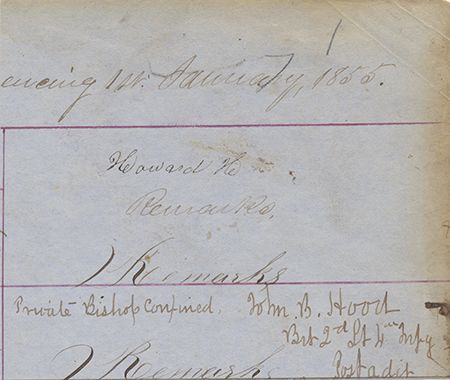 1
encing 1st. January, 1855.
Howard H
Remarks,
Remarks
Private Bishop Confined. John B. Hood
Bvt 2d Lt 4th Infy
Post adjt
Remarks